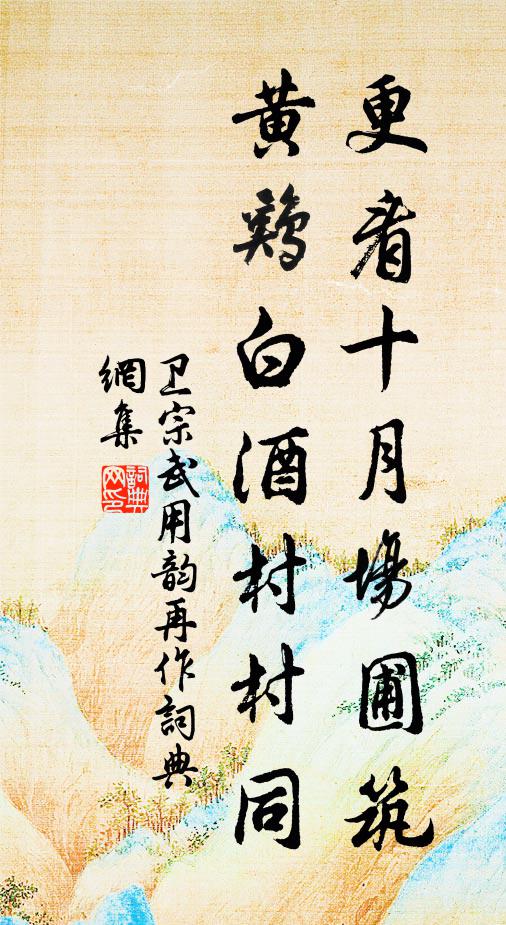 更看十月場圃筑
黄鷄白酒村村同
卫宗武用韵再作詞典
網集
詞典網印